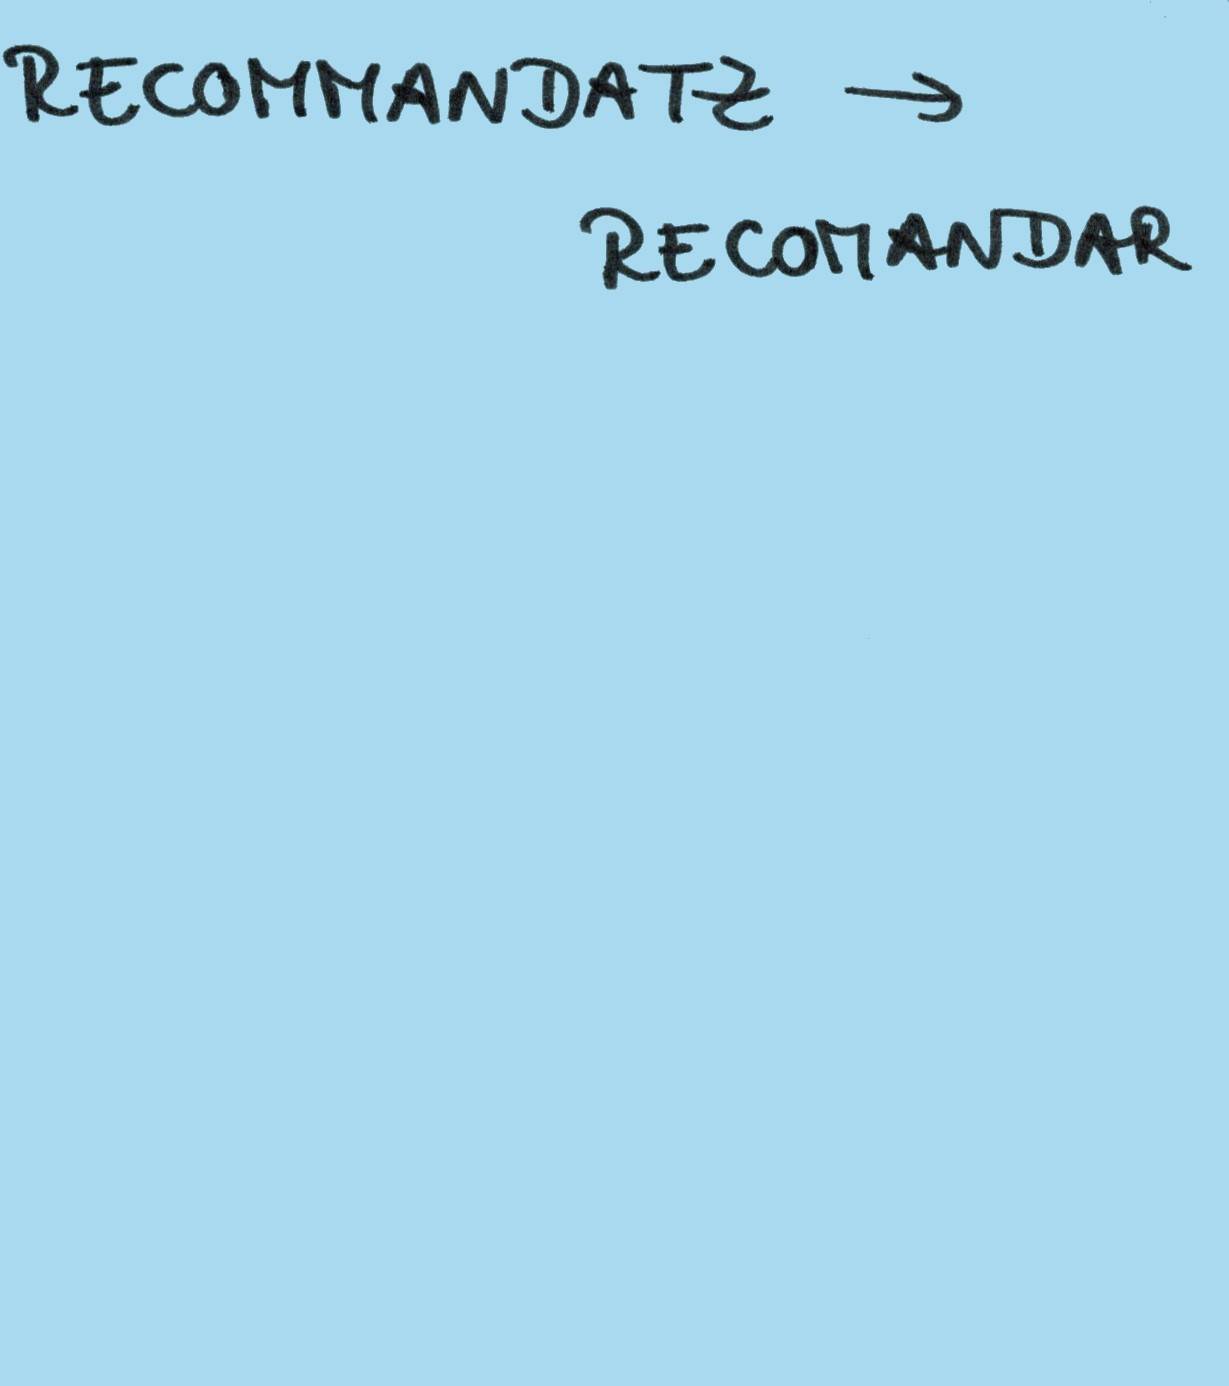 RECOMMANDATZ →
RECOMANDAR